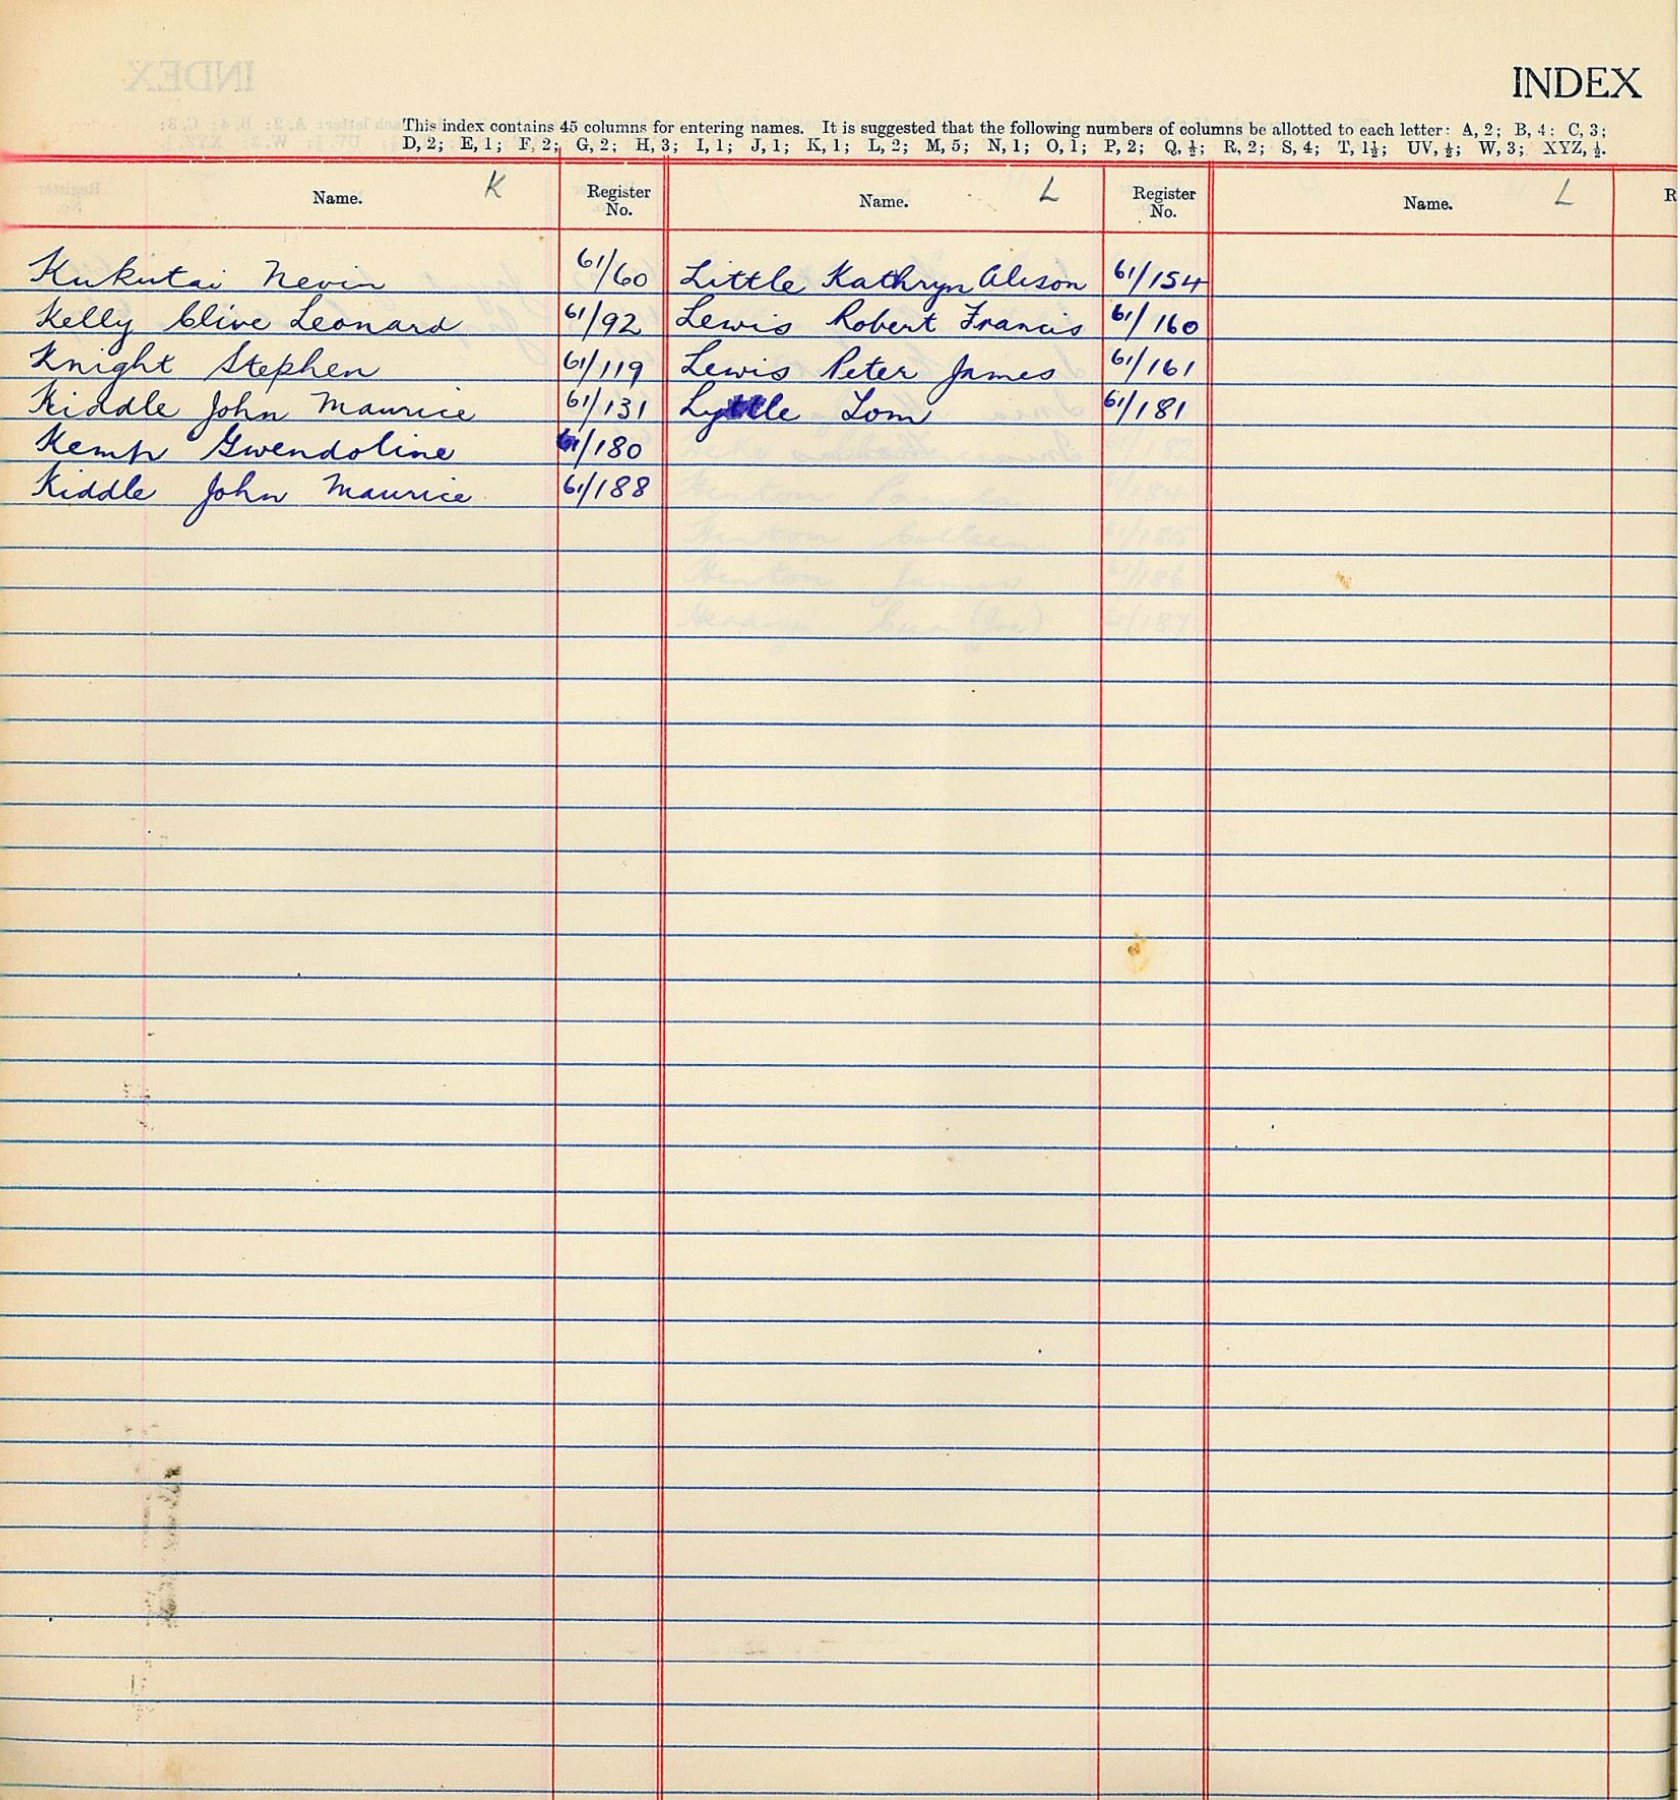 INDEX
This index contains 45 columns for entering names. It is suggested that the following numbers of columns be allotted to each letter: A, 2; B, 4: C, 3;
D, 2; E, 1; F, 2; G, 2; H, 3; I, 1; J, 1; K, 1; L, 2; M, 5; N, 1; O, 1; P, 2; Q, ½; R, 2; S, 4; T, 1½; UV, ½; W, 3; XYZ, ½.
Name. K Register No. Name. L Register No. Name. L R
Kukutai Nevin 61/60 Little Kathryn Alison 61/154
Kelly Clive Leonard 61/92 Lewis Robert Francis 61/160
Knight Stephen 61/119 Lewis Peter James 61/161
Kiddle John Maurice 61/131 Lyttle Tom 61/181
Kemp Gwendoline 61/180
Kiddle John Maurice 61/188